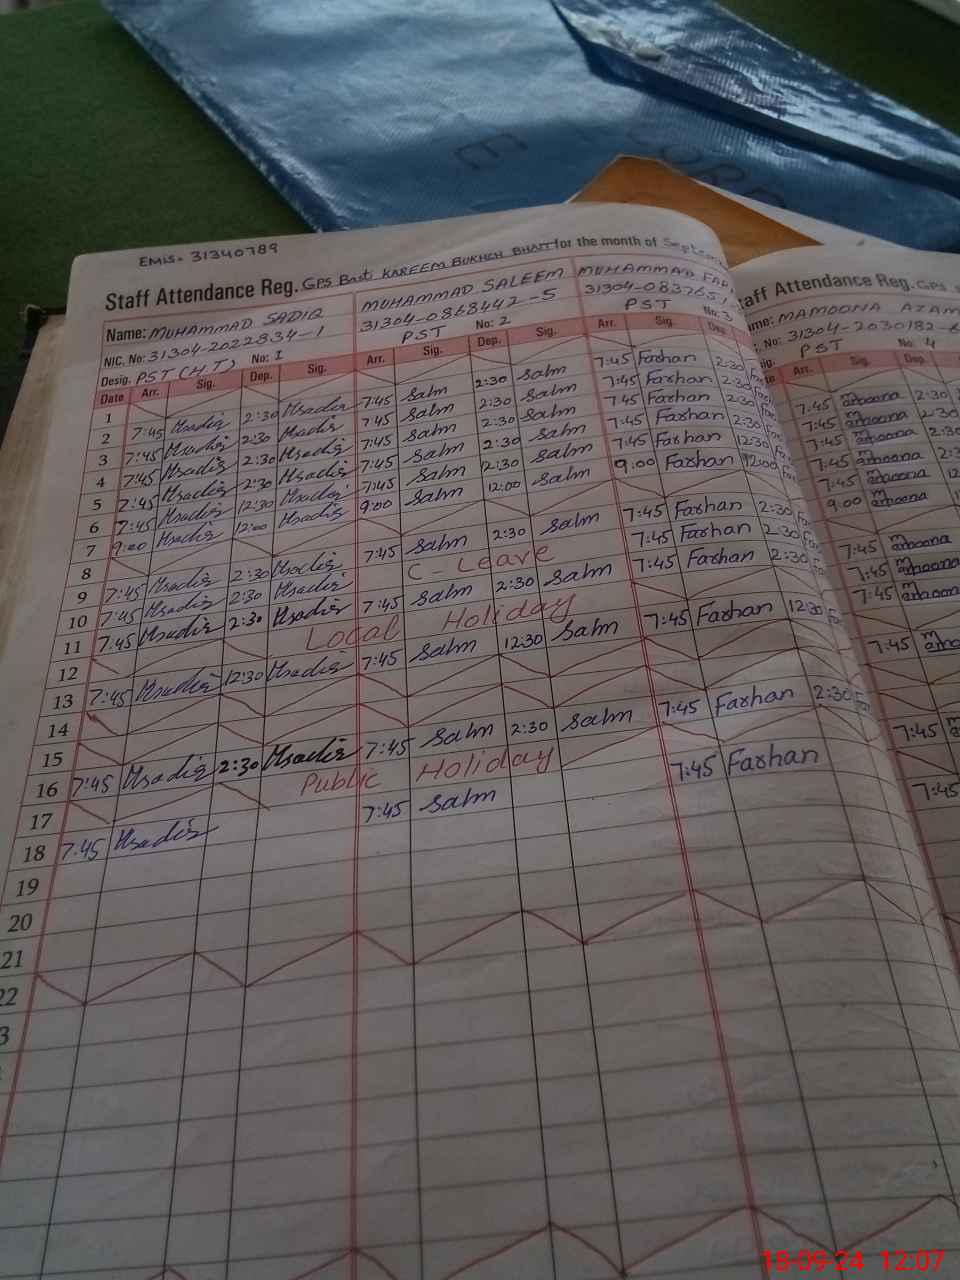 EMIS. 31340789
Staff Attendance Reg. GPS Basti KAREEM BUKHSH BHATT for the month of Septem
Name: MUHAMMAD SADIQ MUHAMMAD SALEEM MUHAMMAD FAR
NIC. No: 31304-2022834-1 31304-0868442-5
Desig. PST (H.T) No: 1 PST No: 2 PST No: 3
Date Arr. Sig. Dep. Sig. Arr. Sig. Dep. Sig. Arr. Sig. Dep.
1
2 7:45 Msadiq 2:30 Msadiq 7:45 Salm 2:30 Salm 7:45 Farhan 2:30
3 7:45 Msadiq 2:30 Msadiq 7:45 Salm 2:30 Salm 7:45 Farhan 2:30
4 7:45 Msadiq 2:30 Msadiq 7:45 Salm 2:30 Salm 7:45 Farhan 2:30
5 7:45 Msadiq 2:30 Msadiq 7:45 Salm 2:30 Salm 7:45 Farhan 2:30
6 7:45 Msadiq 12:30 Msadiq 7:45 Salm 12:30 Salm 7:45 Farhan 12:30
7 9:00 Msadiq 12:00 Msadiq 9:00 Salm 12:00 Salm 9:00 Farhan 12:00
8
9 7:45 Msadiq 2:30 Msadiq 7:45 Salm 2:30 Salm 7:45 Farhan 2:30
10 7:45 Msadiq 2:30 Msadiq C-Leave 7:45 Farhan 2:30
11 7:45 Msadiq 2:30 Msadiq 7:45 Salm 2:30 Salm 7:45 Farhan 2:30
12 Local Holiday
13 7:45 Msadiq 12:30 Msadiq 7:45 Salm 12:30 Salm 7:45 Farhan 12:30
14
15
16 7:45 Msadiq 2:30 Msadiq 7:45 Salm 2:30 Salm 7:45 Farhan 2:30
17 Public Holiday
18 7:45 Msadiq 7:45 Salm 7:45 Farhan
19
20
21
22
3
taff Attendance Reg. GPS
me: MAMOONA AZAM
. No: 31304-2030182-
sig. PST No: 4
Arr. Sig. Dep.
7:45 2:30
7:45 2:30
7:45 2:30
7:45
7:45
9:00
7:45
7:45
7:45
7:45
7:45
7:45
18-09-24 12:07